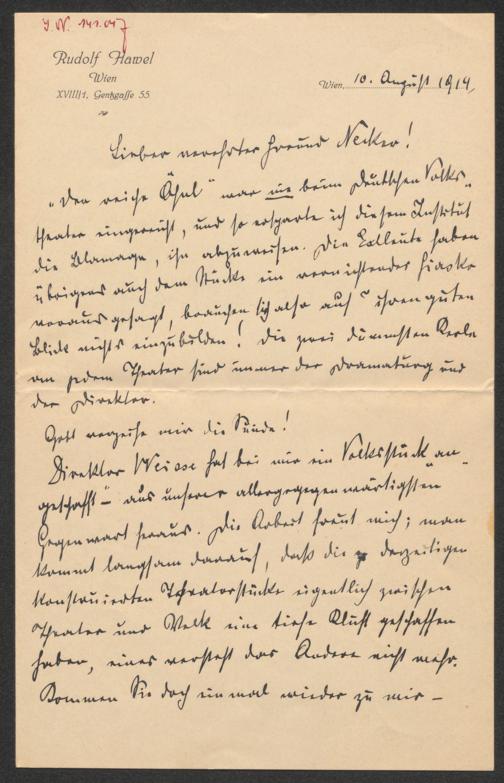 J. N. 141.047
Rudolf Hawel
Wien
XVIII/1, Gentzgasse 55
Wien, 10. August 1914,
Lieber verehrter Freund Necker!
„Der reiche Ähnl" war nie beim Deutschen Volks-
theater eingereicht, und so ersparte ich diesem Institut
die Blamage, ihn abzuweisen. Die Exlleute haben
übrigens auch dem Stücke ein vernichtendes Fiasko
voraus gesagt, brauchen sich also auf ihren guten
Blick nichts einzubilden! Die zwei dümmsten Kerle
an jedem Theater sind immer der Dramaturg und
der Direktor.
Gott verzeihe mir die Sünde!
Direktor Weisse hat bei mir ein Volksstück „an-
geschafft" – aus unserer allergegenwärtigsten
Gegenwart heraus. Die Arbeit freut mich; man
kommt langsam darauf, daß die derzeitigen
konstruierten Theaterstücke eigentlich zwischen
Theater und Volk eine tiefe Kluft geschaffen
haben, eines versteht das Andere nicht mehr.
Kommen Sie doch einmal wieder zu mir –